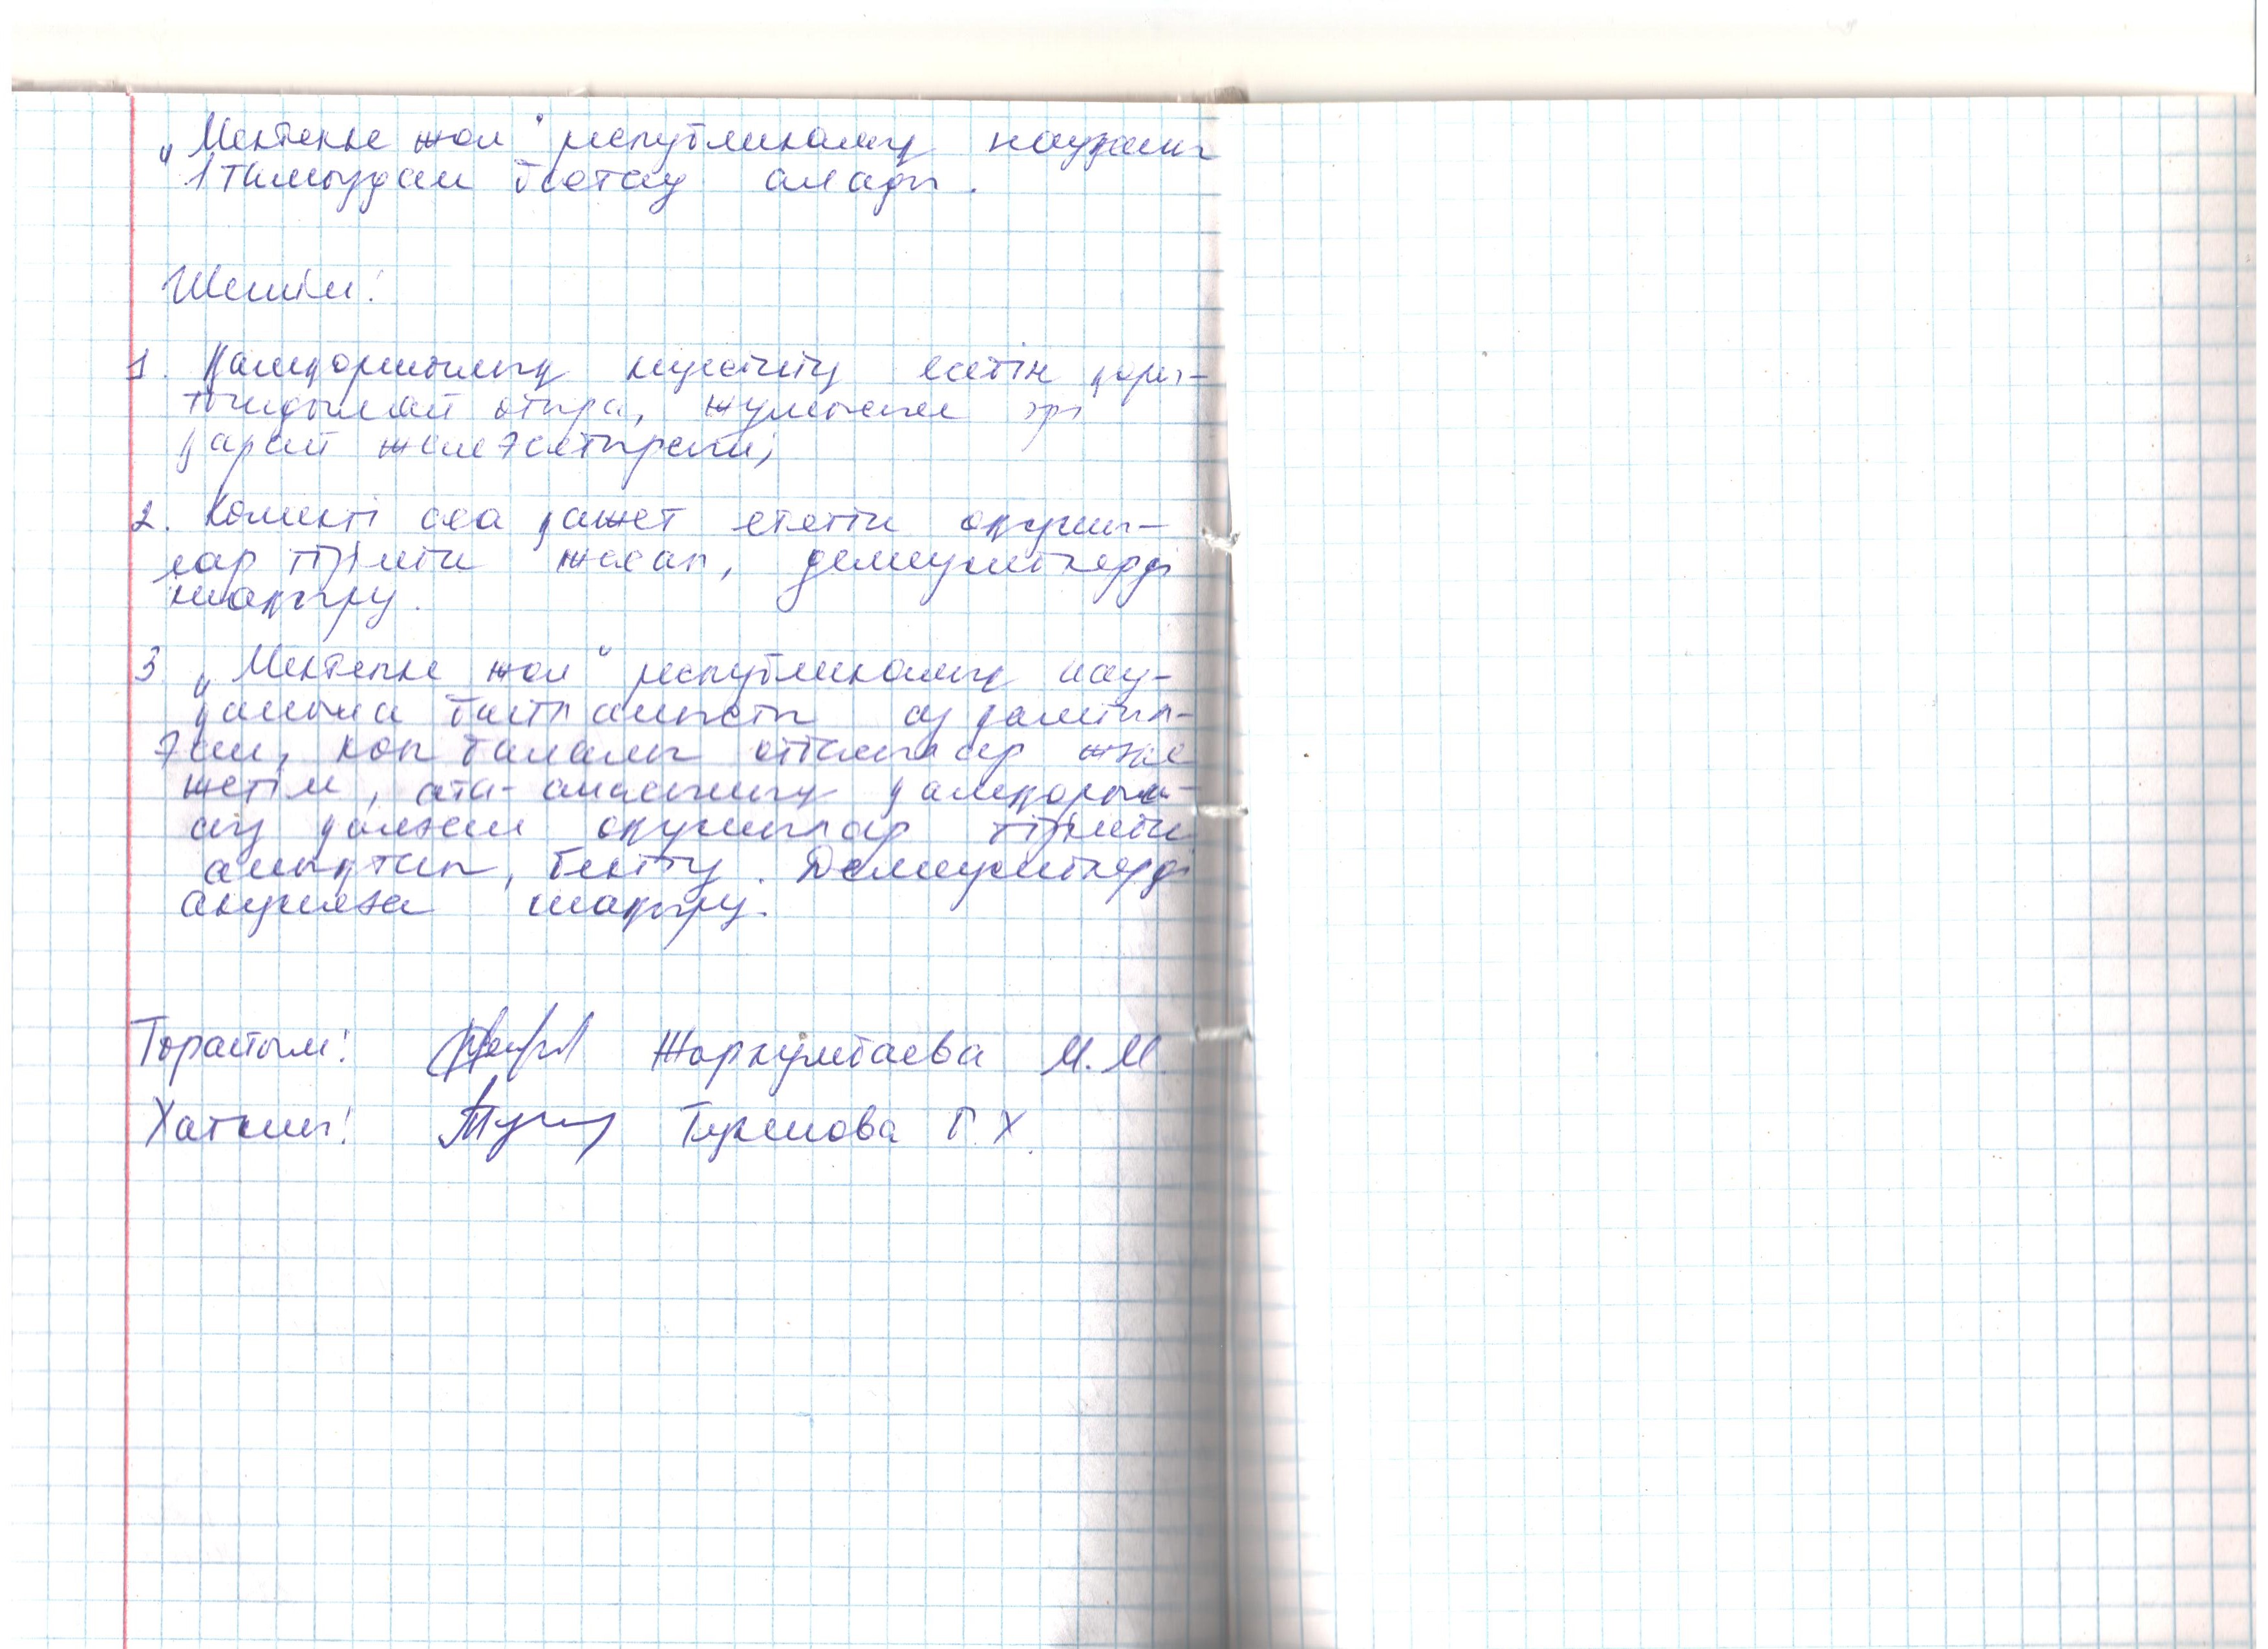 „Мектепке жол" республикалық науқаны
1 тамыздан бастау алады.
Шешім:
1. Қамқоршылық кеңесінің есебін қоры-
тындылай отыра, жұмысын әрі
қарай жалғастырсын;
2. Көмекті аса қажет ететін оқушы-
лар тізімін жасап, демеушілерді
шақыру.
3 „Мектепке жол" республикалық нау-
қанына байланысты аз қамтыл-
ған, көп балалы отбасылар және
жетім, ата-анасының қамқорын-
сыз қалған оқушылар тізімін
анықтап, бекіту. Демеушілерді
акцияға шақыру.
Төрайым: Жаркумбаева М.М.
Хатшы: Г.Х.